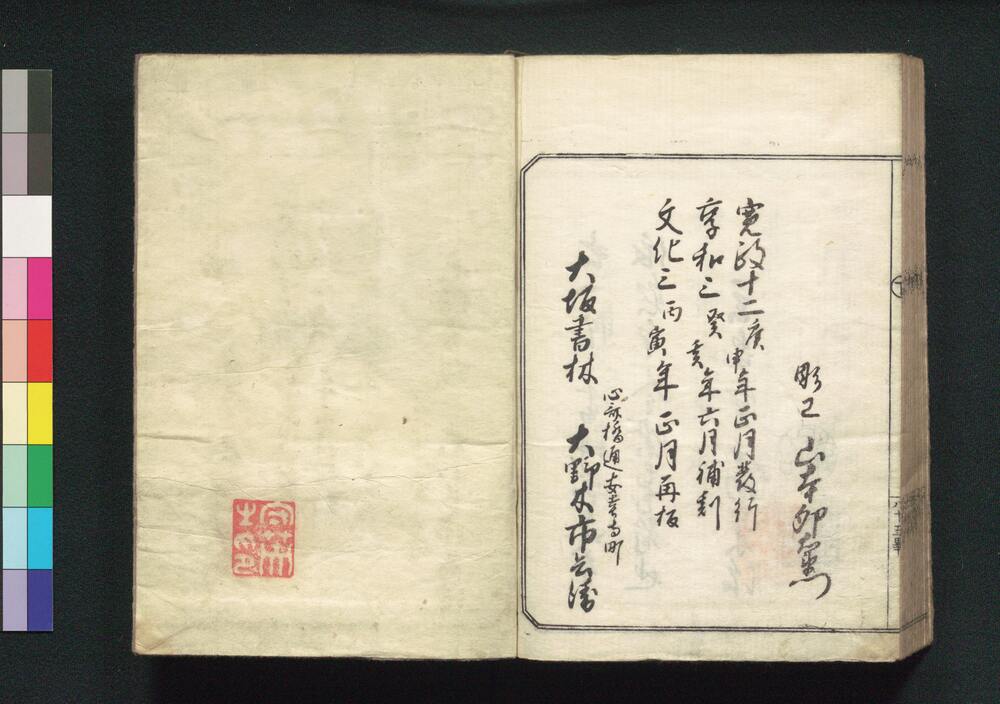 彫工 山本卯兵衛
寛政十二庚申年正月發行
享和三癸亥年六月補刻
文化三丙寅年正月再板
心斎橋通安堂寺町
大坂書林 大野木市兵衛
八十五畢